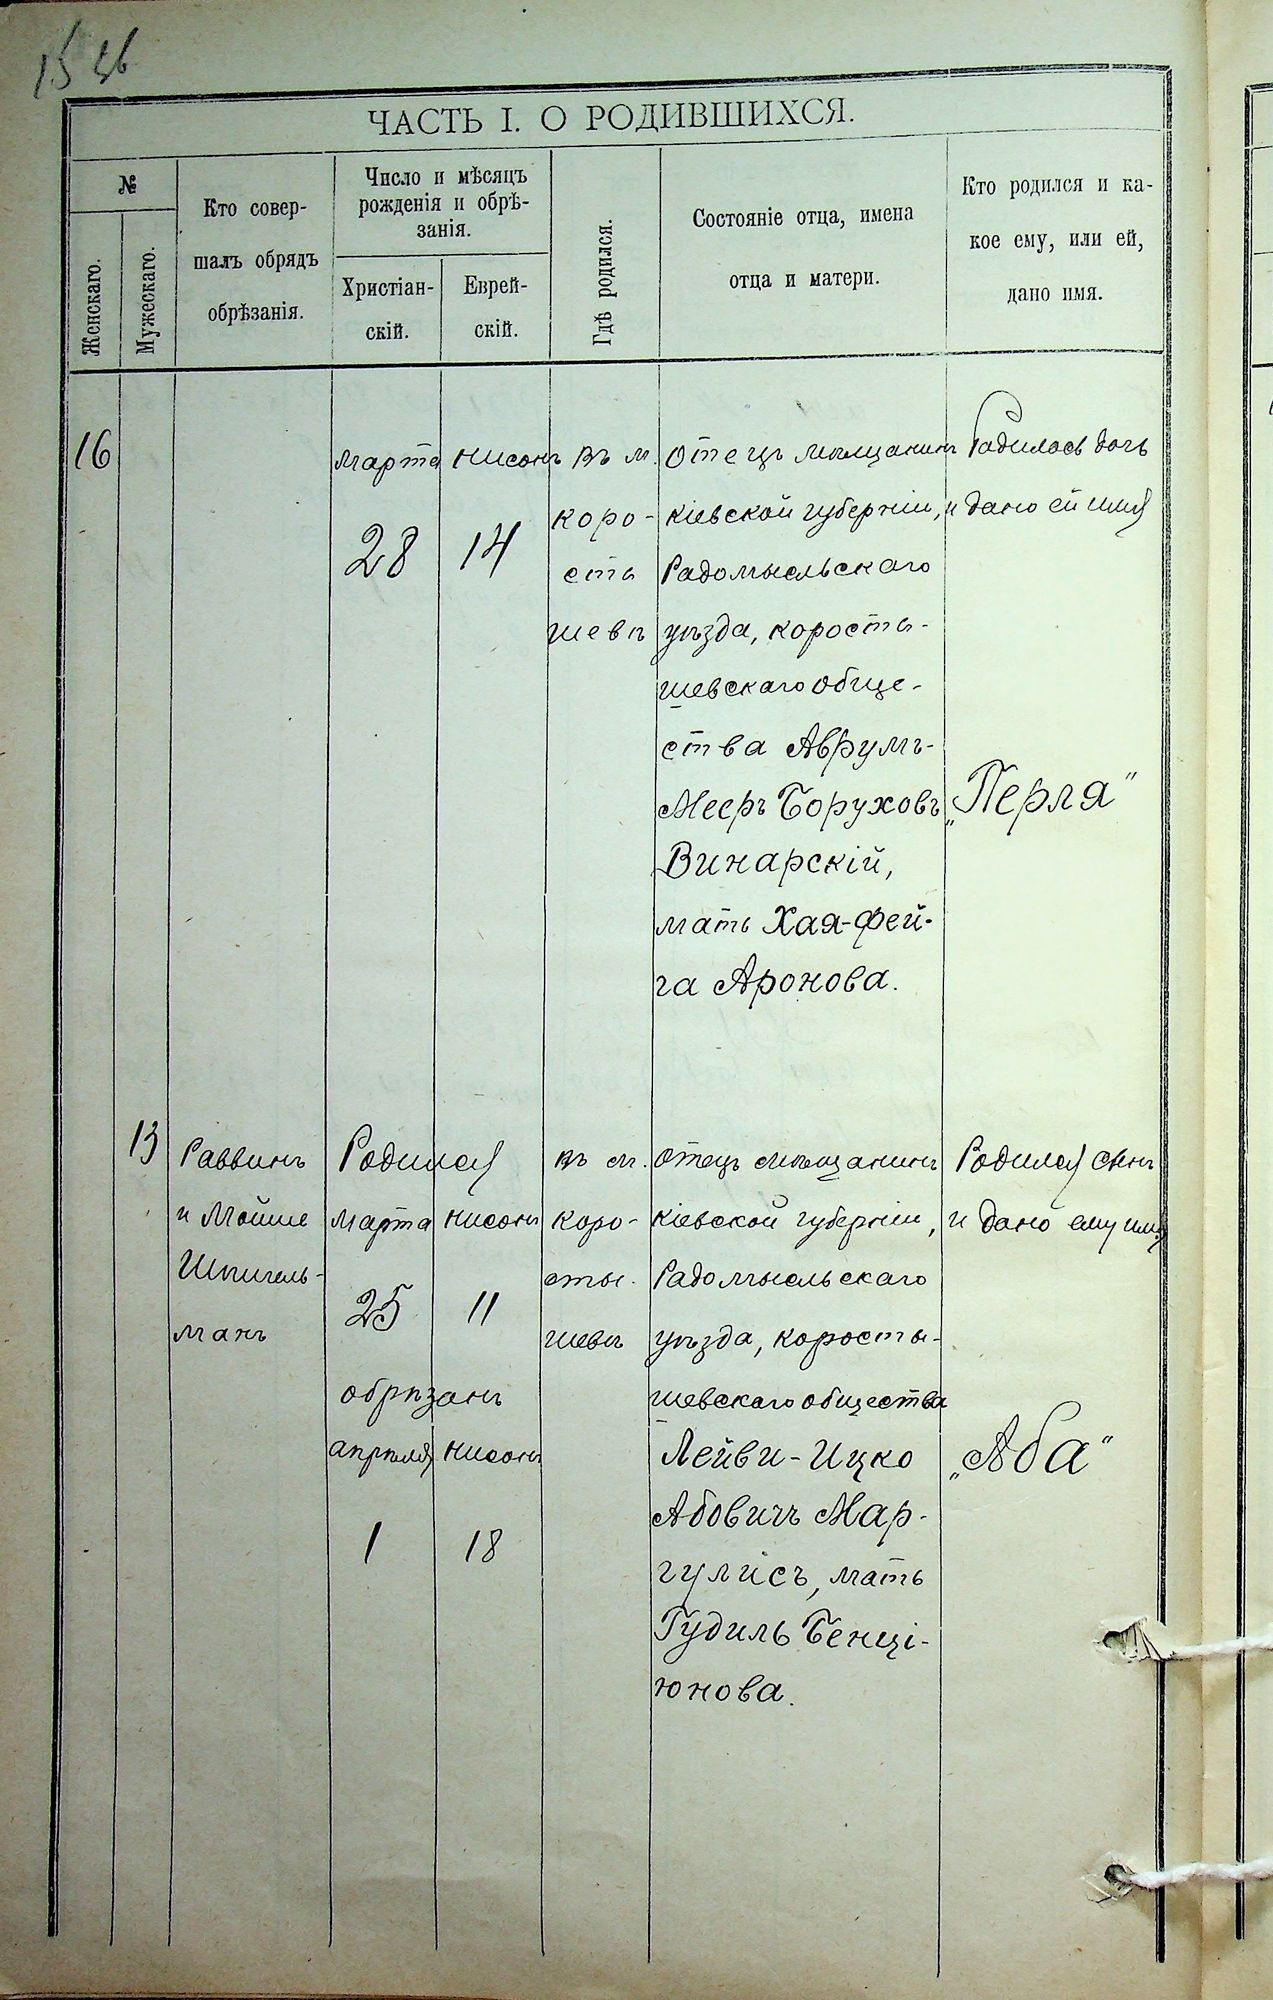 ЧАСТЬ I. О РОДИВШИХСЯ.
№
Женскаго.
Мужескаго.
Кто совер-
шалъ обрядъ
обрѣзанія.
Число и мѣсяцъ
рожденія и обрѣ-
занія.
Христіан-
скій.
Еврей-
скій.
Гдѣ родился.
Состояніе отца, имена
отца и матери.
Кто родился и ка-
кое ему, или ей,
дано имя.
16
марта
28
Нисонъ
14
въ м.
Коро-
сты
шевъ
Отецъ мѣщанинъ
Кіевской губерніи,
Радомысльскаго
уѣзда, коросты-
шевскаго обще-
ства Аврумъ-
Мееръ Боруховъ
Винарскій,
мать Хая-Фей-
га Аронова.
Родилась дочь
и дано ей имя
„Перля"
13
Раввинъ
и Мойше
Шпигель-
манъ
Родился
марта Нисонъ
25 11
обрѣзанъ
апрѣля Нисонъ
1 18
въ м.
Коро-
сты-
шевъ
Отецъ мѣщанинъ
Кіевской губерніи,
Радомысльскаго
уѣзда, коросты-
шевскаго общества
Лейви-Ицко
Абовичъ Мар-
гулисъ, мать
Гудиль Бенці-
юнова.
Родился сынъ
и дано ему имя
„Аба"